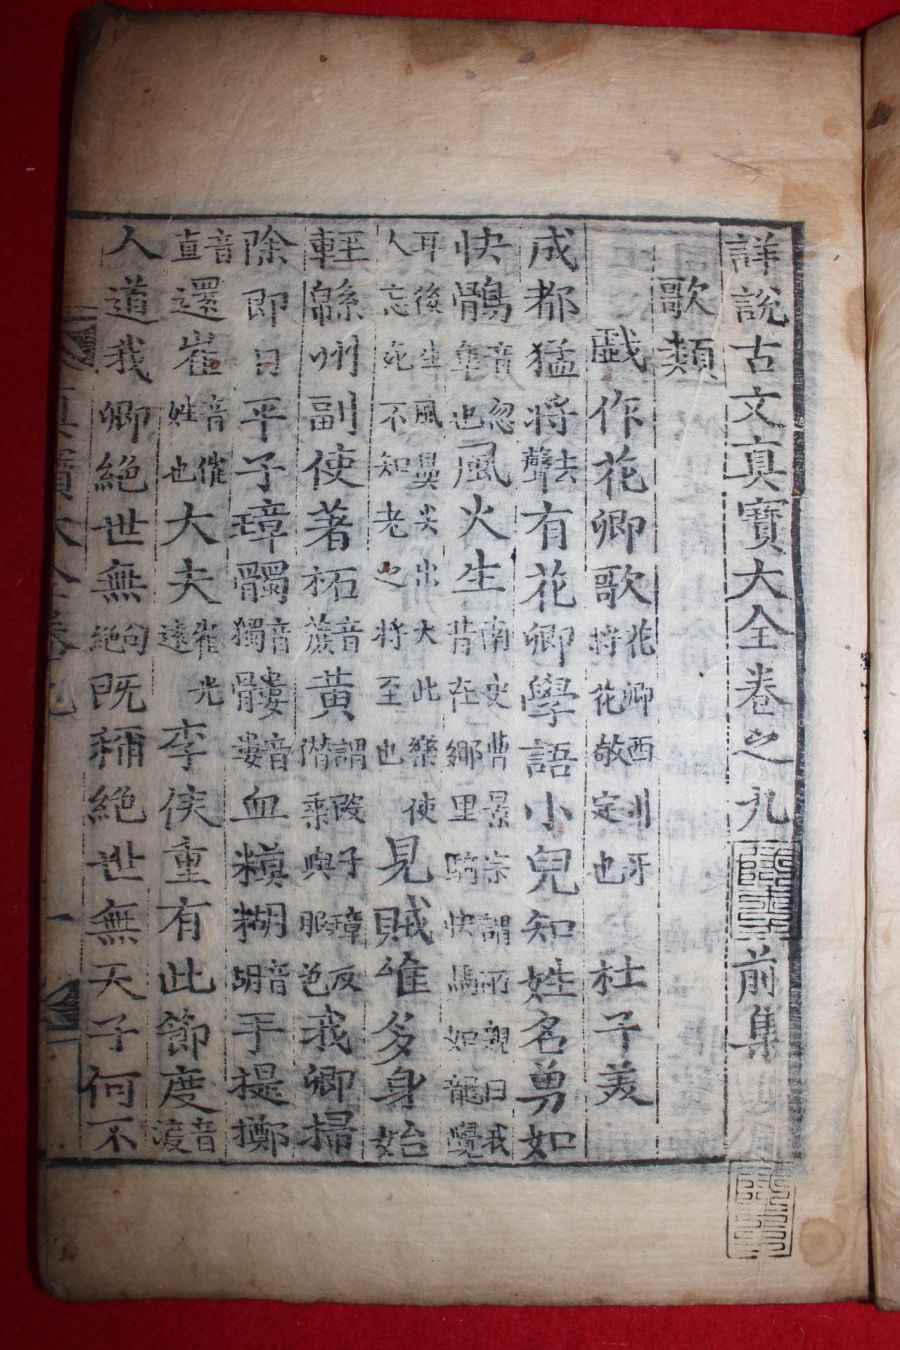 詳說古文真寶大全卷之九 前集
歌類
戱作花卿歌 花卿西川牙將花敬定也 杜子美
成都猛將去聲有花卿學語小兒知姓名勇如
快鶻音忽隼也風火生南史曹景宗謂所親曰我昔在鄉里騎快馬如龍覺
耳後生風鼻尖出火此樂使人忘死不知老之將至也見賊唯多身始
輕綿州副使著柘音蔗黃謂段子璋反僣乘與服色我卿掃
除即日平子璋髑音獨髏音婁血糢糊音胡手提擲
音直還崔音催姓也大夫崔光遠李侯重有此節度音渡
人道我卿絕世無句絕旣稱絕世無天子何不